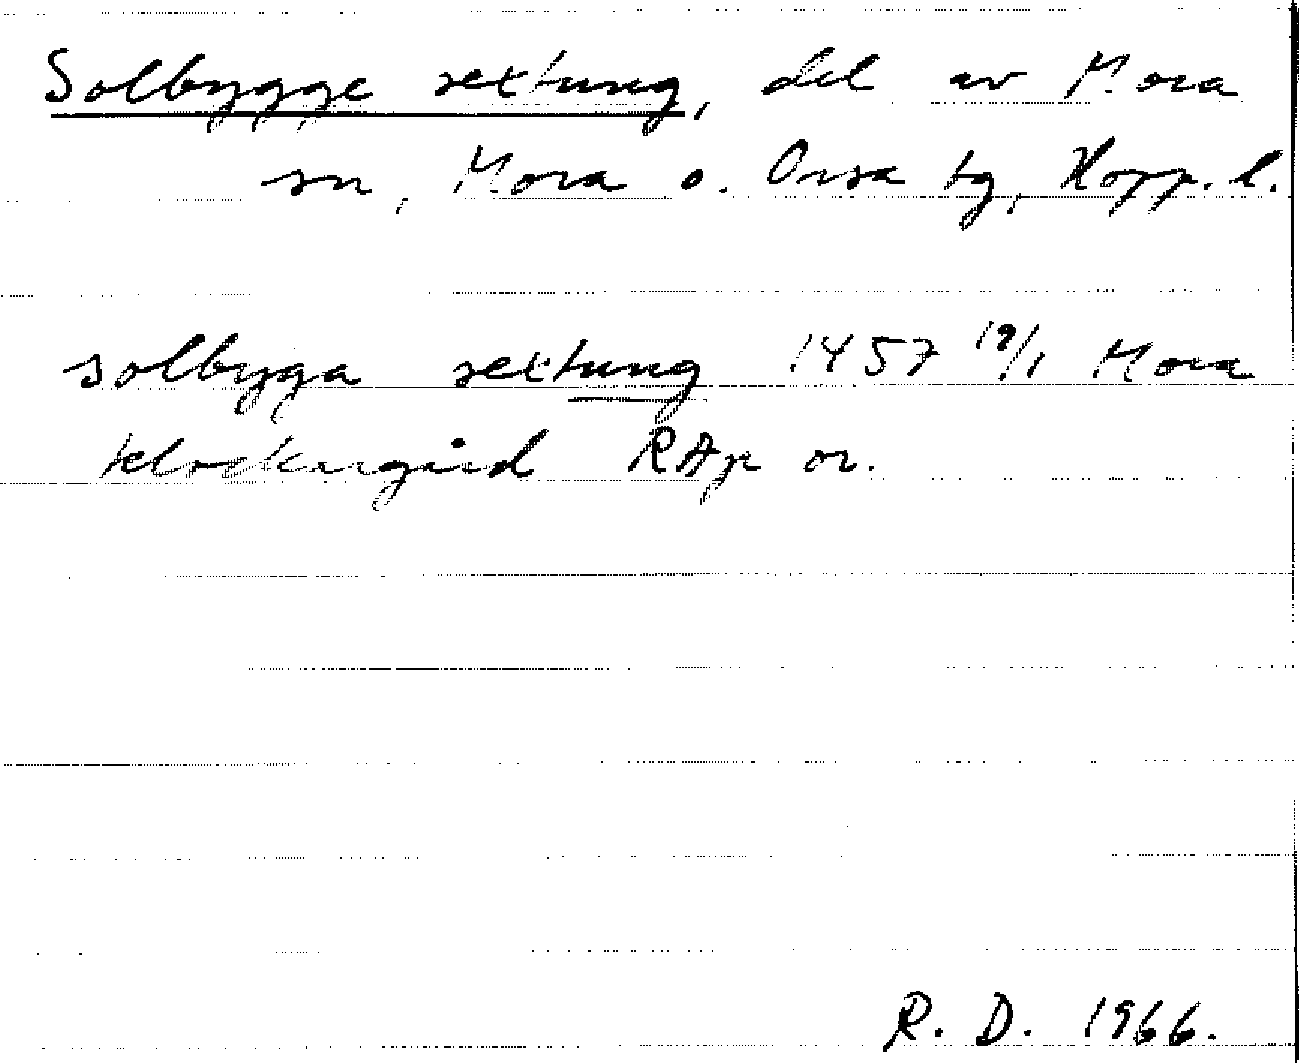 Solbygge settung, del av Mora
sn, Mora o. Orsa tg, Kopp. l.
solbyga settung 1457 19/1 Mora
klockargård RAp or.
R. D. 1966.